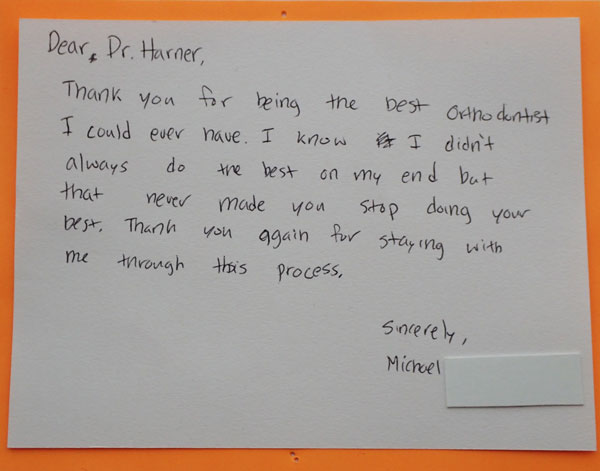 Dear, Dr. Harner,
Thank you for being the best orthodontist
I could ever have. I know I didn't
always do the best on my end but
that never made you stop doing your
best. Thank you again for staying with
me through this process.
Sincerely,
Michael